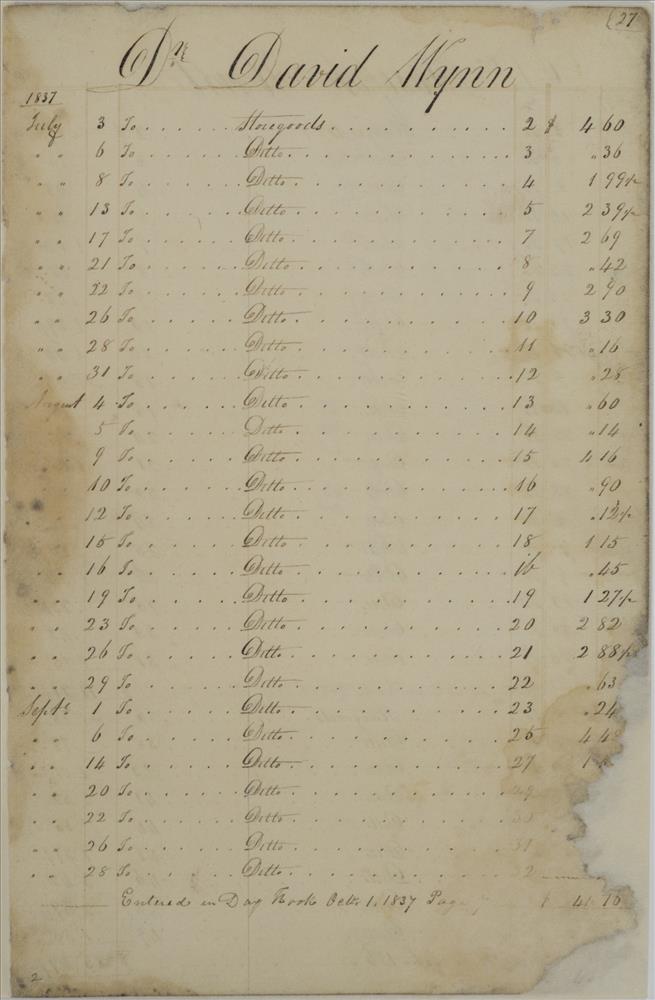 27
Dr. David Wynn
1837
July 3 To . . . . . . Storegoods . . . . . . . . . . 2 $ 4 60
" " 6 To . . . . . . Ditto . . . . . . . . . . 3 " 36
" " 8 To . . . . . . Ditto . . . . . . . . . . 4 1 99½
" " 13 To . . . . . . Ditto . . . . . . . . . . 5 2 39½
" " 17 To . . . . . . Ditto . . . . . . . . . . 7 2 69
" " 21 To . . . . . . Ditto . . . . . . . . . . 8 " 42
" " 22 To . . . . . . Ditto . . . . . . . . . . 9 2 90
" " 26 To . . . . . . Ditto . . . . . . . . . . 10 3 30
" " 28 To . . . . . . Ditto . . . . . . . . . . 11 " 16
" " 31 To . . . . . . Ditto . . . . . . . . . . 12 " 28
August 4 To . . . . . . Ditto . . . . . . . . . . 13 " 60
5 To . . . . . . Ditto . . . . . . . . . . 14 " 14
" 9 To . . . . . . Ditto . . . . . . . . . . 15 4 16
" 10 To . . . . . . Ditto . . . . . . . . . . 16 " 90
" 12 To . . . . . . Ditto . . . . . . . . . . 17 " 12½
" 15 To . . . . . . Ditto . . . . . . . . . . 18 1 15
" " 16 To . . . . . . Ditto . . . . . . . . . . 16 " 45
" " 19 To . . . . . . Ditto . . . . . . . . . . 19 1 27½
" " 23 To . . . . . . Ditto . . . . . . . . . . 20 2 82
" " 26 To . . . . . . Ditto . . . . . . . . . . 21 2 88½
" " 29 To . . . . . . Ditto . . . . . . . . . . 22 " 63
Septr. 1 To . . . . . . Ditto . . . . . . . . . . 23 " 24
" " 6 To . . . . . . Ditto . . . . . . . . . . 25 4
" " 14 To . . . . . . Ditto . . . . . . . . . . 27 1
" " 20 To . . . . . . Ditto . . . . . . . . . . 29
" " 22 To . . . . . . Ditto . . . . . . . . . .
" " 26 To . . . . . . Ditto . . . . . . . . . . 31
" " 28 To . . . . . . Ditto . . . . . . . . . .
Entered in Day Book Octr. 1, 1837 Page $ 41 16
2